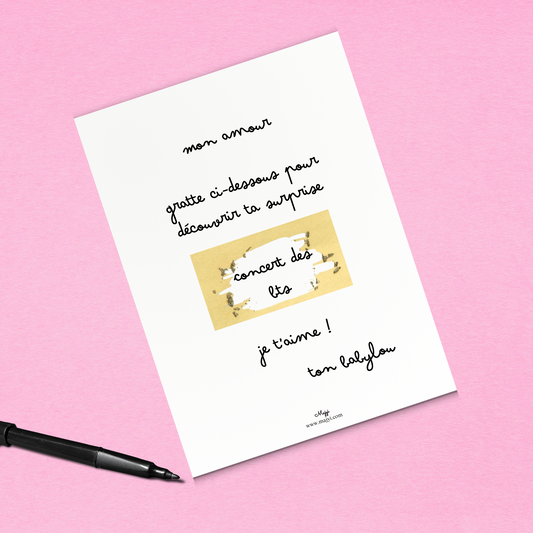 mon amour
gratte ci-dessous pour
découvrir ta surprise
concert des
bts
je t'aime !
ton babylou
Majji
www.majyi.com